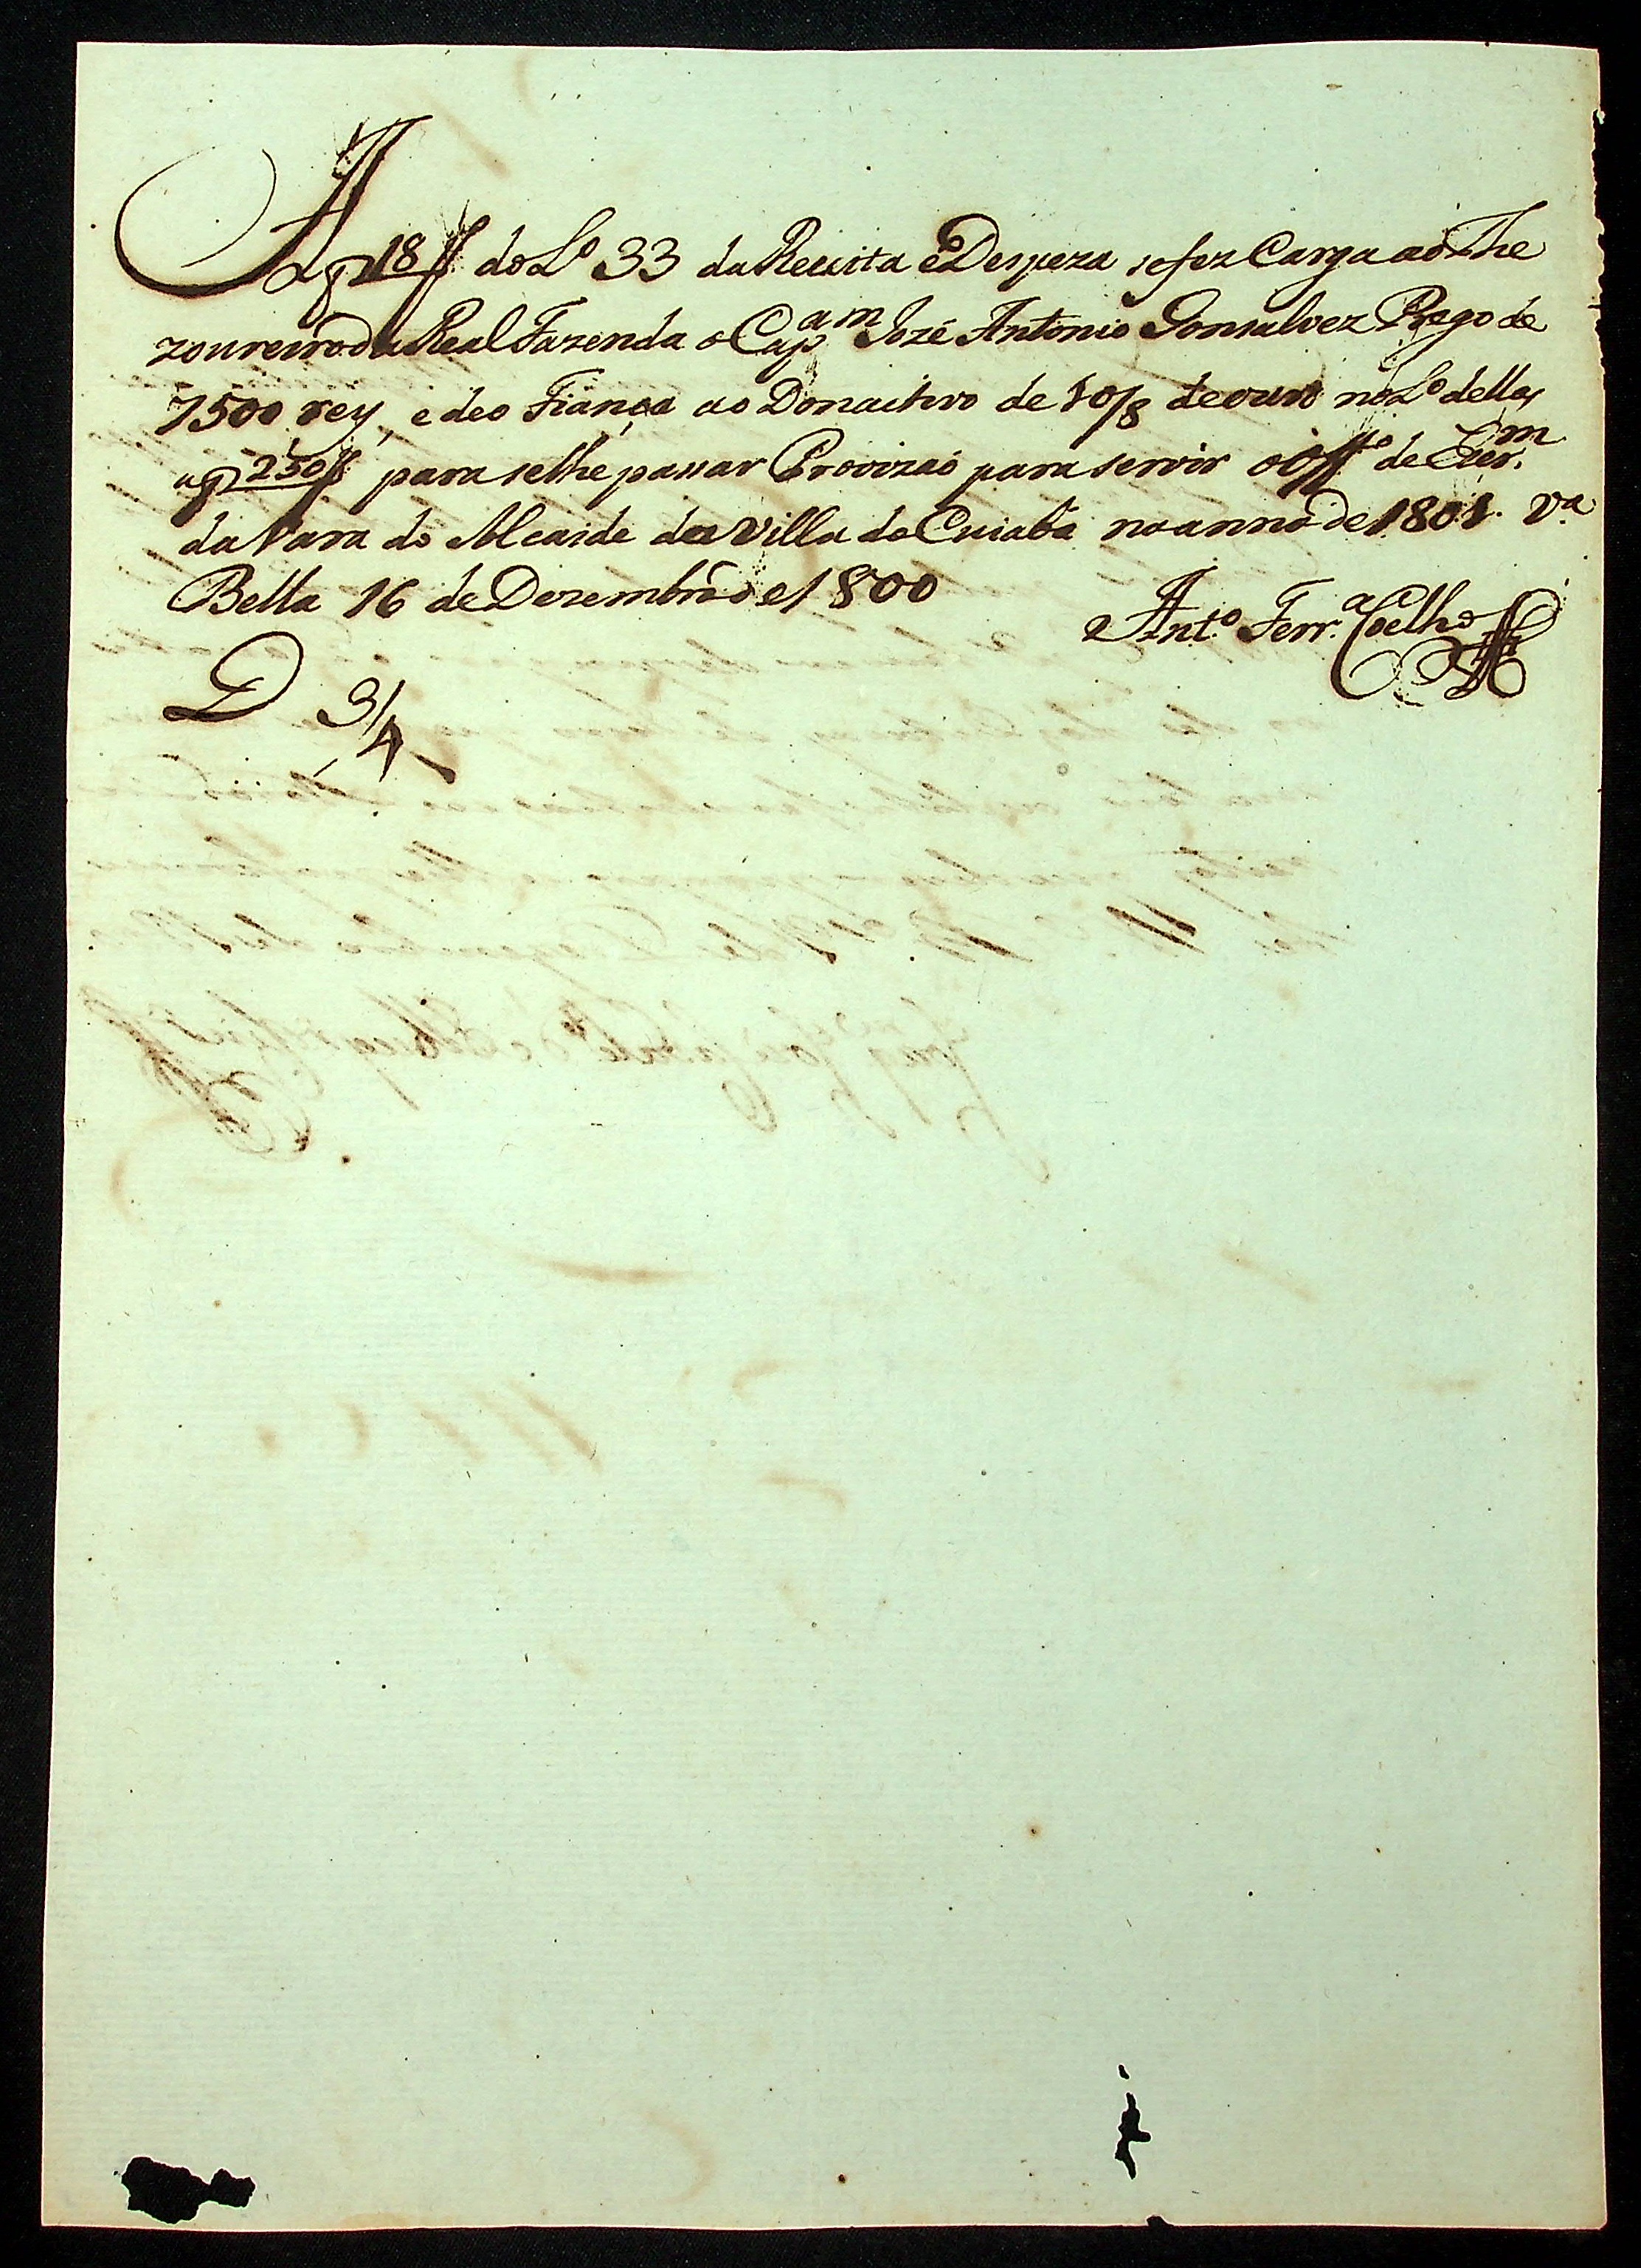 A fl 18 V do Lº 33 da Receita e Despeza se fez Carga ao The
zoureiro da Real Fazenda o Cap.am Jozé Antonio Gonsalvez Prego de
7500 reys, e deo Fiança ao Donactivo de 10/8 de ouro no Lº dellas
a fl 250 V para se lhe passar Provizaõ para servir o Off.º de Escr.m
da Vara do Alcaide da Villa do Cuiabá no anno de 1801. V.a
Bella 16 de Dezembro de 1800
Ant.º Ferr.a Coelho
D 3/4